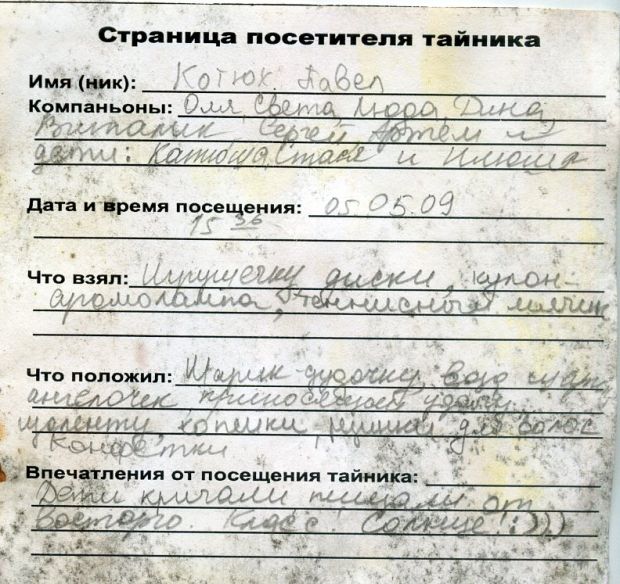 Страница посетителя тайника
Имя (ник): Котюх Павел
Компаньоны: Оля, Света, Люда, Дина,
Виталик Сергей Артём и
дети: Катюша, Стася и Илюша
Дата и время посещения: 05.05.09
15 36
Что взял: Игрушечку диски, кулон-
аромолампа, теннисный мячик
Что положил: Шарик дудочку,
ангелочек приносящая удачу
копейки, для волос
Конфетки
Впечатления от посещения тайника:
Дети кричали пищали от
восторга. Класс Солнце! :)))